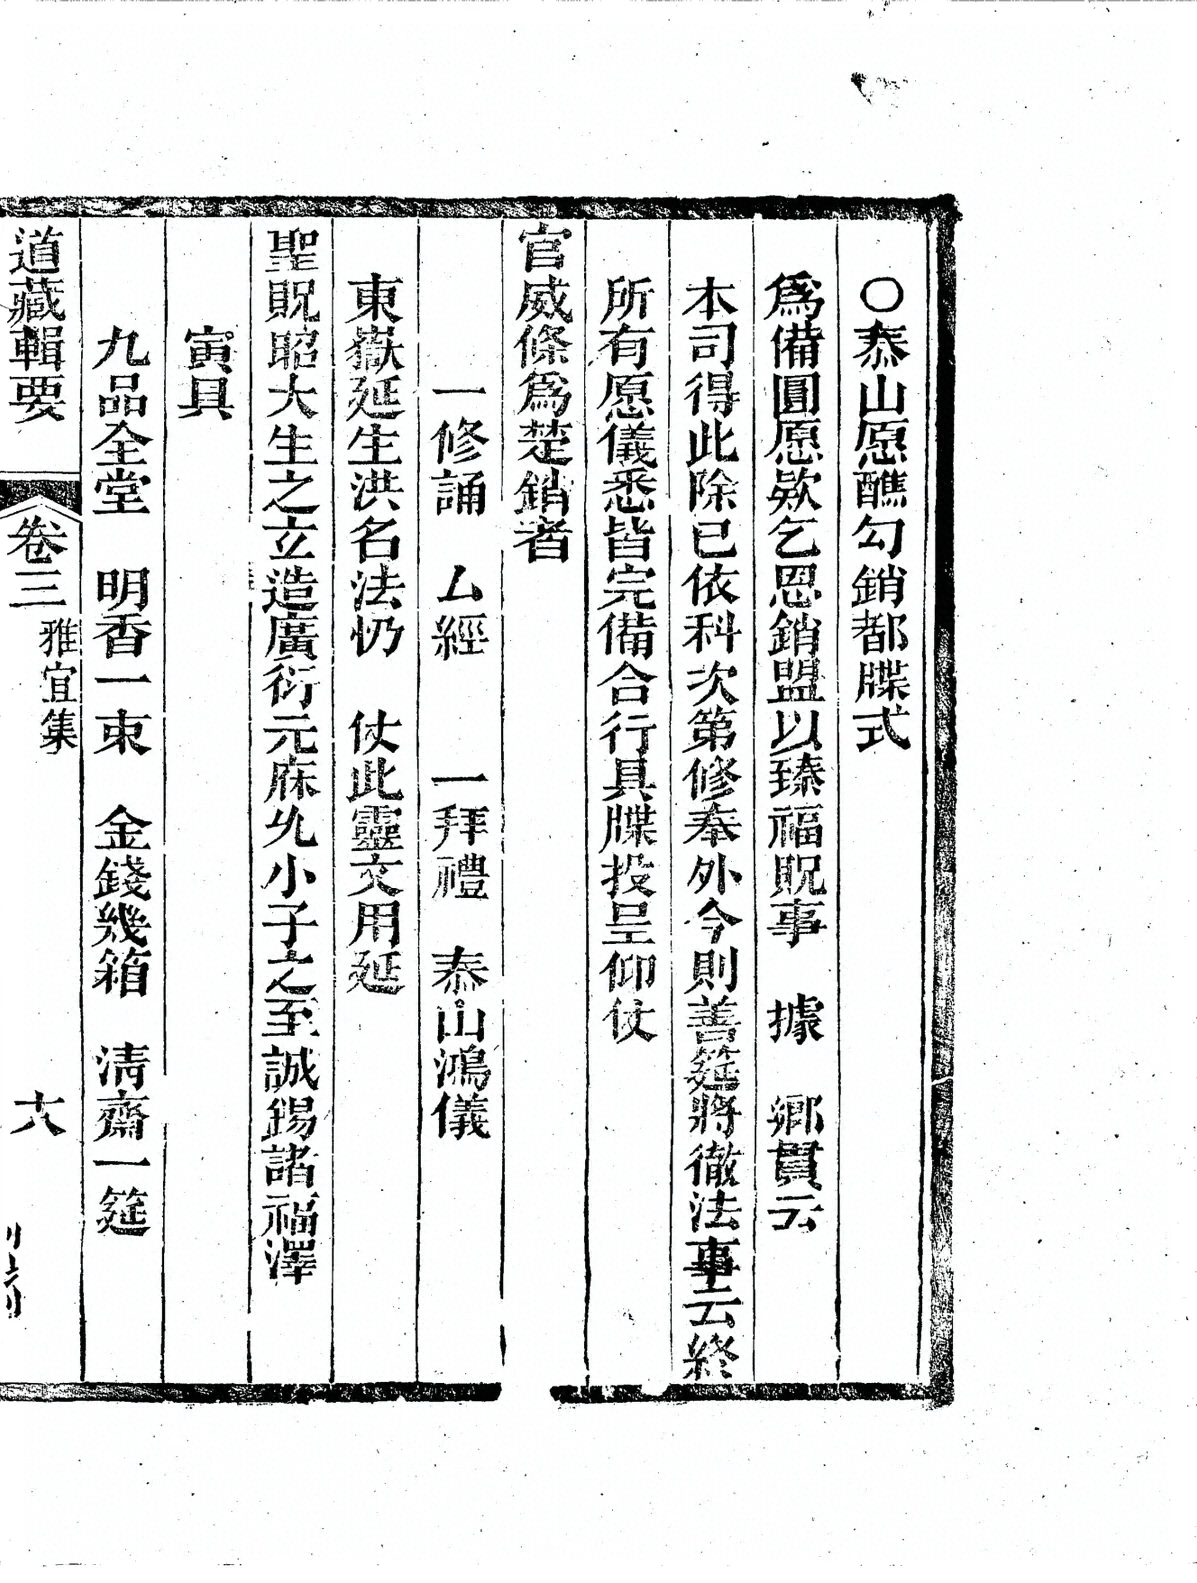 ○泰山愿醮勾銷都牒式
爲備圓愿欵乞恩銷盟以臻福貺事　據　鄉貫云
本司得此除已依科次第修奉外今則善筵將徹法事云終
所有愿儀悉皆完備合行具牒投呈仰仗
官威條爲楚銷者
一修誦　厶經　　一拜禮　泰山鴻儀
東嶽延生洪名法㣼　仗此靈文用延
聖貺昭大生之立造廣衍元庥允小子之至誠錫諸福澤
寅具
九品全堂　明香一束　金錢幾箱　清齋一筵
道藏輯要　卷三　雅宜集　六